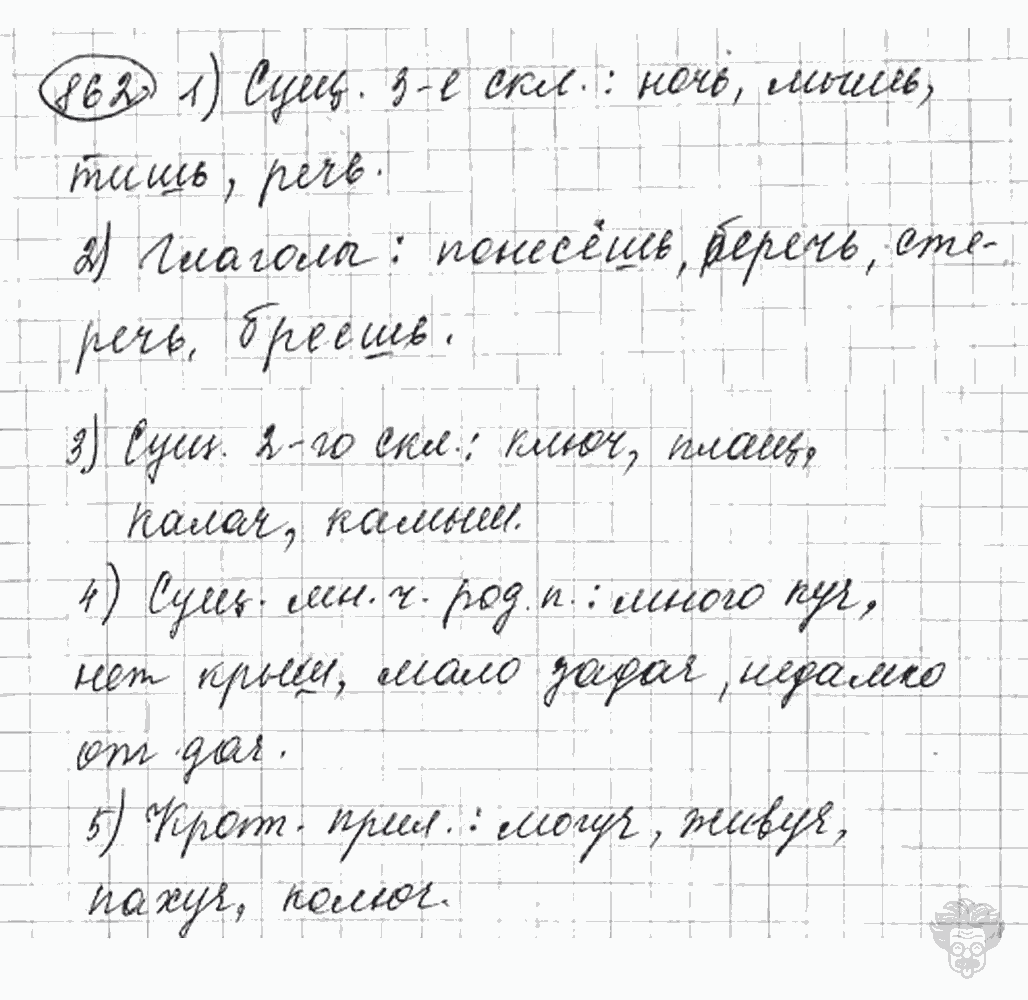 862. 1) Сущ. 3-е скл.: ночь, мышь,
тишь, речь.
2) Глаголы: понесёшь, беречь, сте-
речь, бреешь.
3) Сущ. 2-го скл.: ключ, плащ,
калач, камыш.
4) Сущ. мн. ч. род. п.: много куч,
нет крыш, мало задач, недалеко
от дач.
5) Крат. прил.: могуч, живуч,
пахуч, колюч.